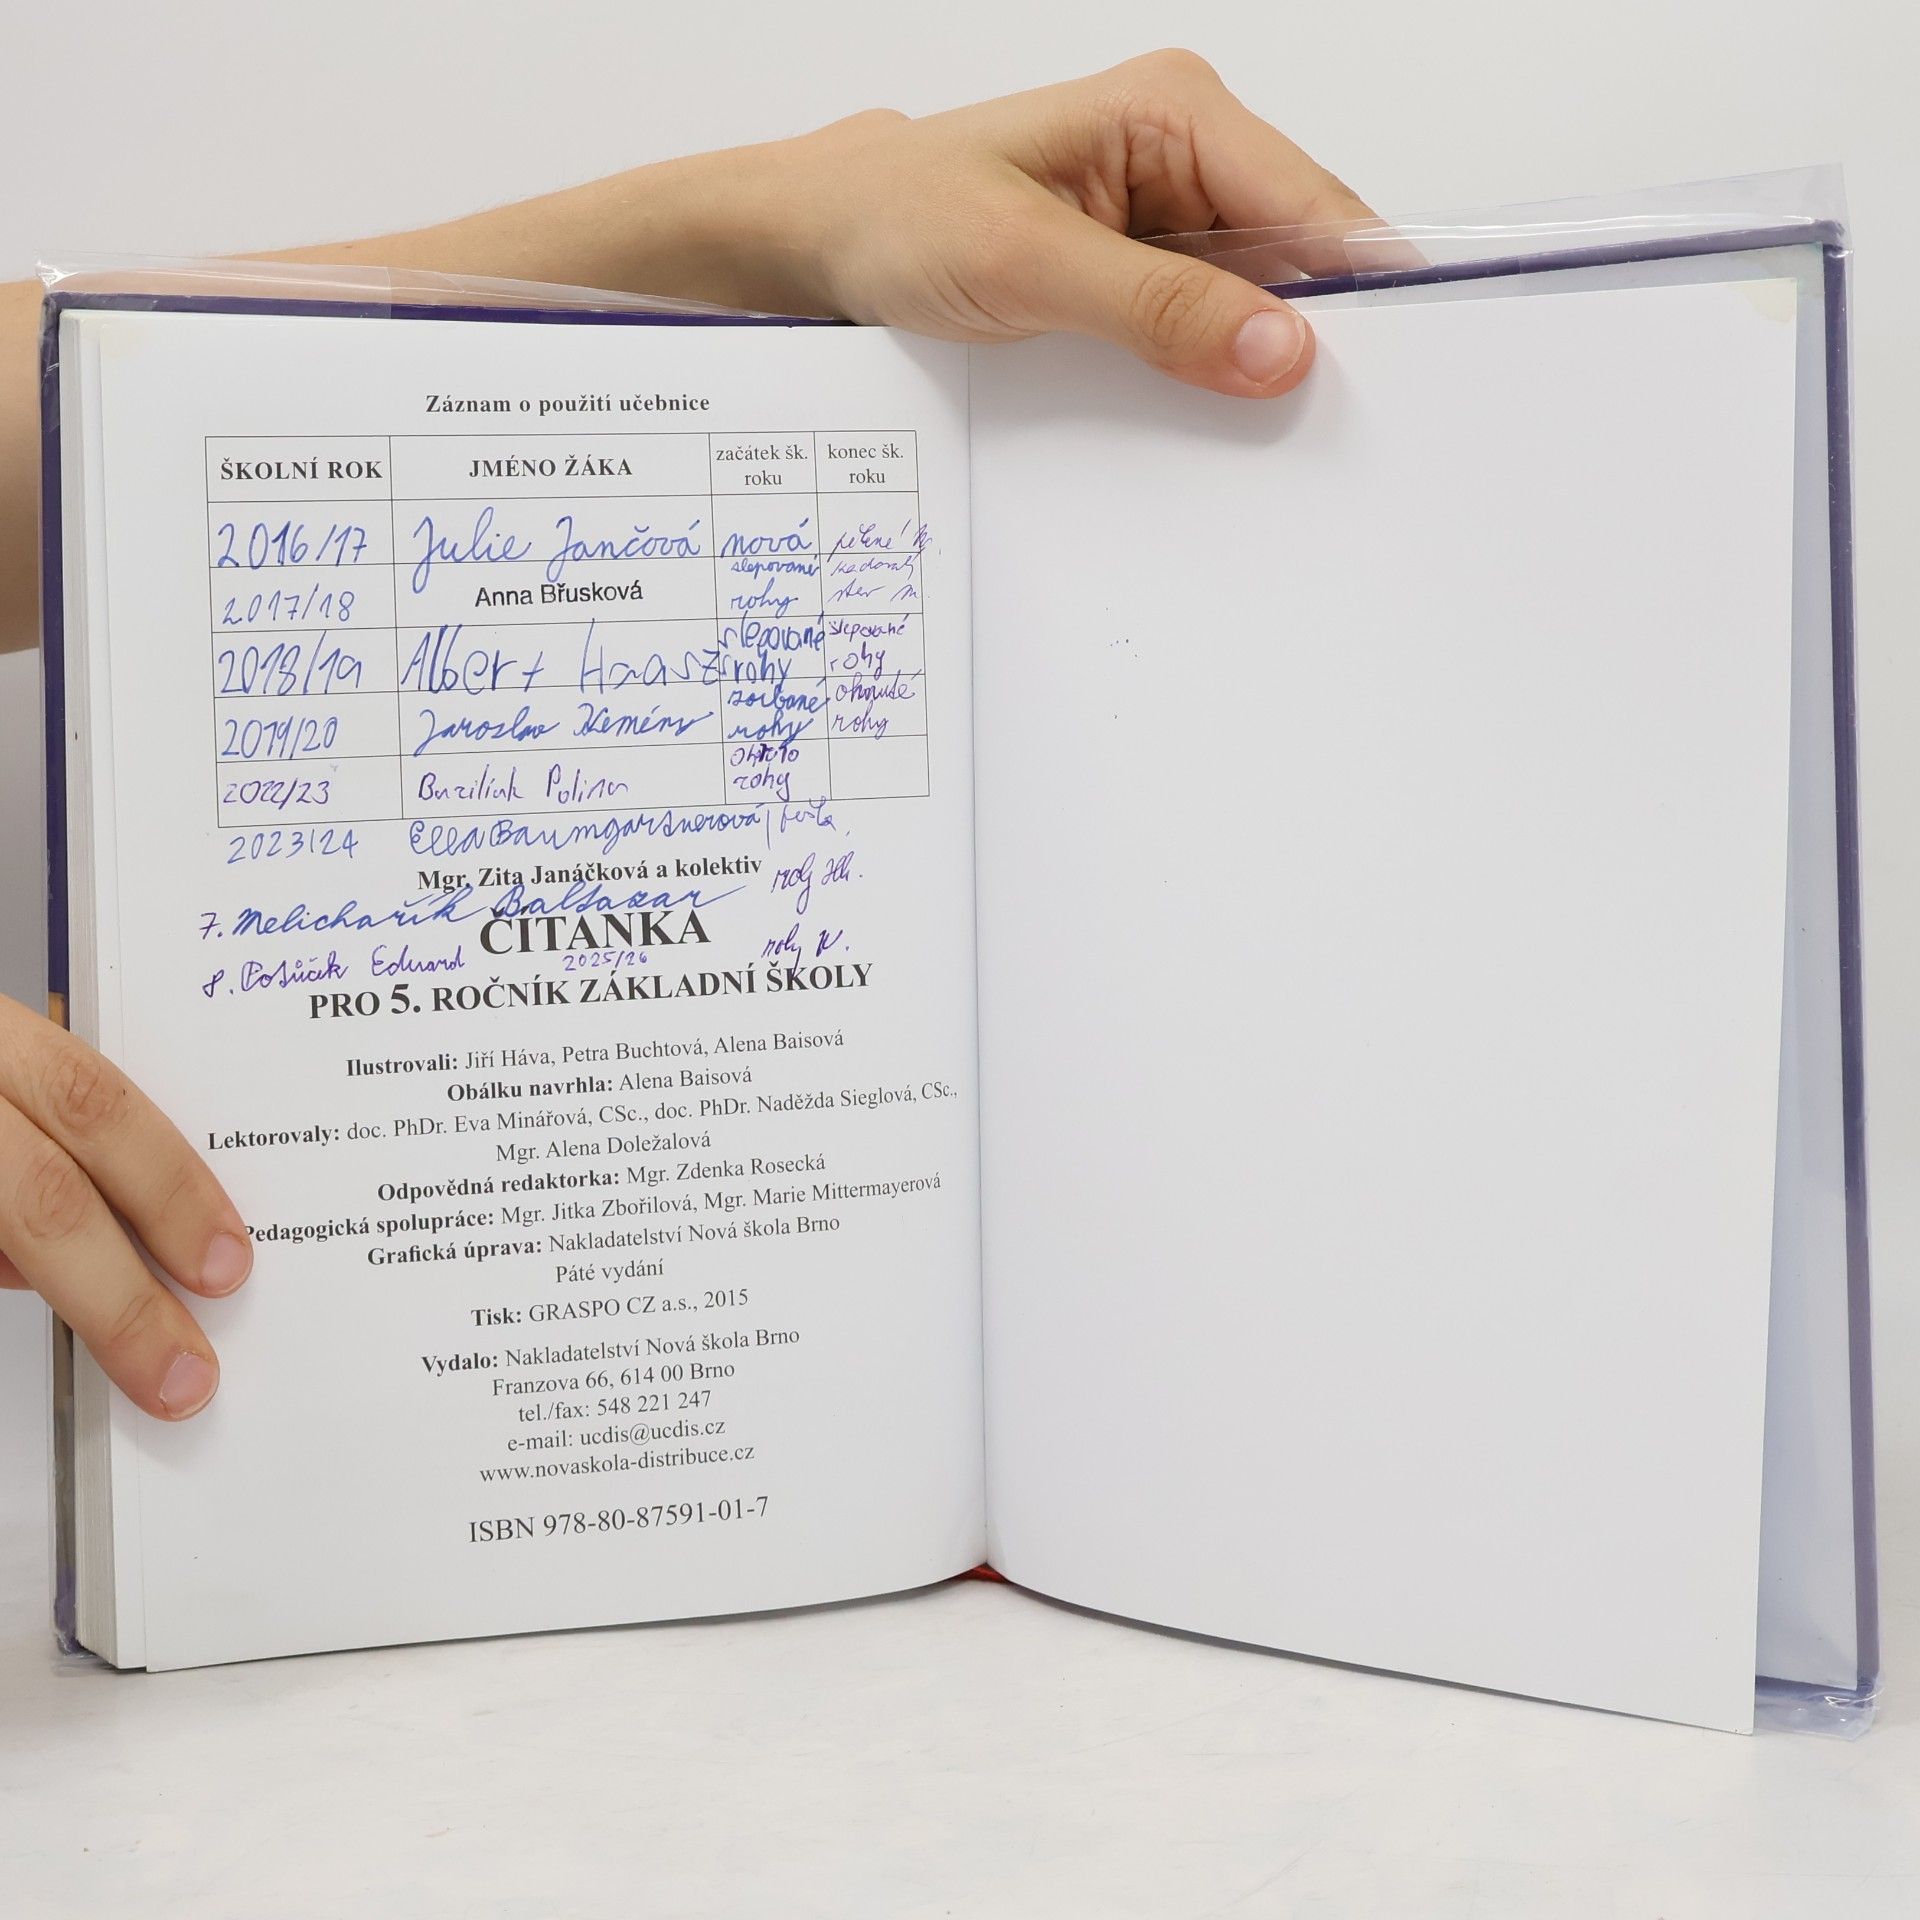 Záznam o použití učebnice
ŠKOLNÍ ROK JMÉNO ŽÁKA začátek šk. roku konec šk. roku
2016/17 Julie Jančová nová
2017/18 Anna Břusková slepované rohy
2018/19 Albert Haasz slepované rohy slepované rohy
2019/20 Jaroslav rohy ohnuté rohy
2022/23 Polina rohy
2023/24 Ella Baumgartnerová
Mgr. Zita Janáčková a kolektiv
7. Melichařík Baltazar rohy
ČÍTANKA
8. Eduard 2025/26 rohy
PRO 5. ROČNÍK ZÁKLADNÍ ŠKOLY
Ilustrovali: Jiří Háva, Petra Buchtová, Alena Baisová
Obálku navrhla: Alena Baisová
Lektorovaly: doc. PhDr. Eva Minářová, CSc., doc. PhDr. Naděžda Sieglová, CSc.,
Mgr. Alena Doležalová
Odpovědná redaktorka: Mgr. Zdenka Rosecká
Pedagogická spolupráce: Mgr. Jitka Zbořilová, Mgr. Marie Mittermayerová
Grafická úprava: Nakladatelství Nová škola Brno
Páté vydání
Tisk: GRASPO CZ a.s., 2015
Vydalo: Nakladatelství Nová škola Brno
Franzova 66, 614 00 Brno
tel./fax: 548 221 247
e-mail: ucdis@ucdis.cz
www.novaskola-distribuce.cz
ISBN 978-80-87591-01-7